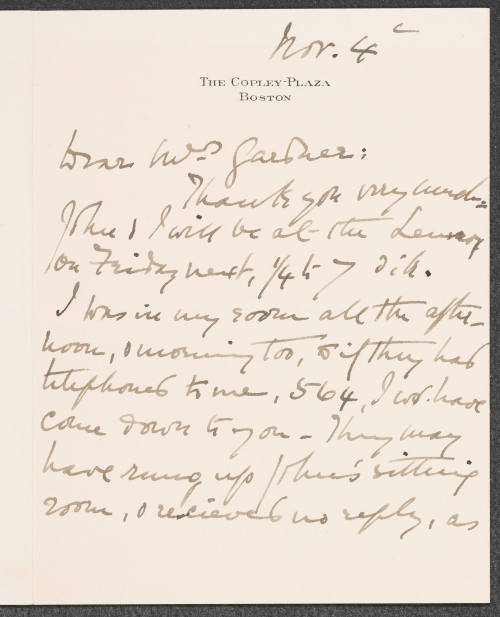 Nov. 4th
THE COPLEY-PLAZA
BOSTON
Dear Mrs Gardner:
Thank you very much=
John & I will be at the Lenox
on Friday next, 1/4 to 7 o'ck.
I was in my room all the after-
noon, & morning too, & if they had
telephoned to me, 564, I wd. have
come down to you - They may
have rung up John's sitting
room, & recieved no reply, as